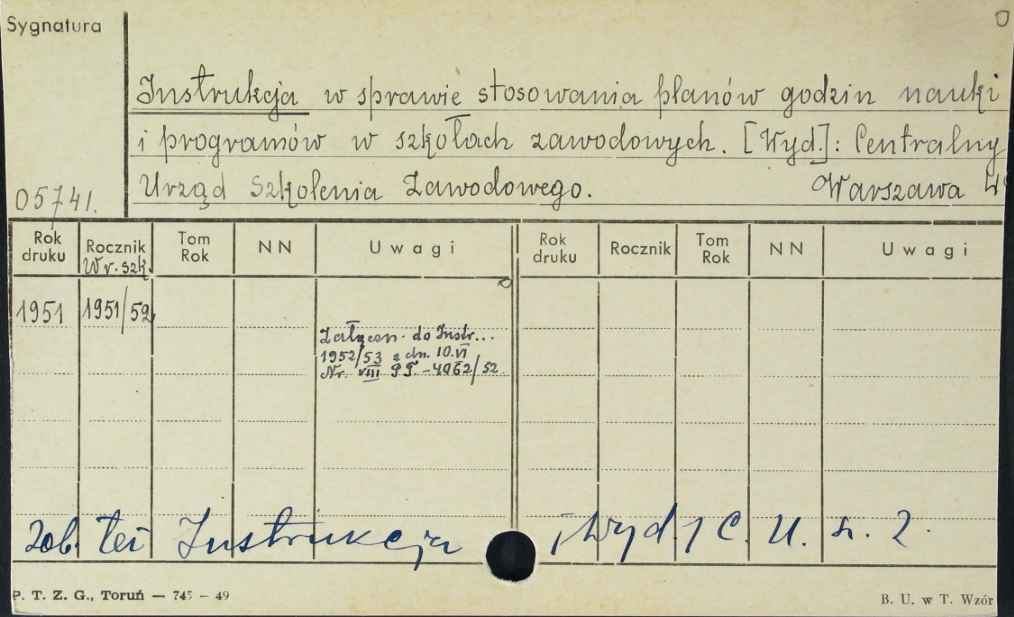 Sygnatura
Instrukcja w sprawie stosowania planów godzin nauki
i programów w szkołach zawodowych. [Wyd.]: Centralny
Urząd Szkolenia Zawodowego. Warszawa
05741.
Rok druku Rocznik W r. szk. Tom Rok NN Uwagi Rok druku Rocznik Tom Rok NN Uwagi
1951 1951/52
Załączon. do Instr...
1952/53 z dn. 10.VI
Nr. VIII PT-4062/52
Zob. też Instrukcja /Wyd./ C. U. S. Z.
P. T. Z. G., Toruń — 745 – 49
B. U. w T. Wzór